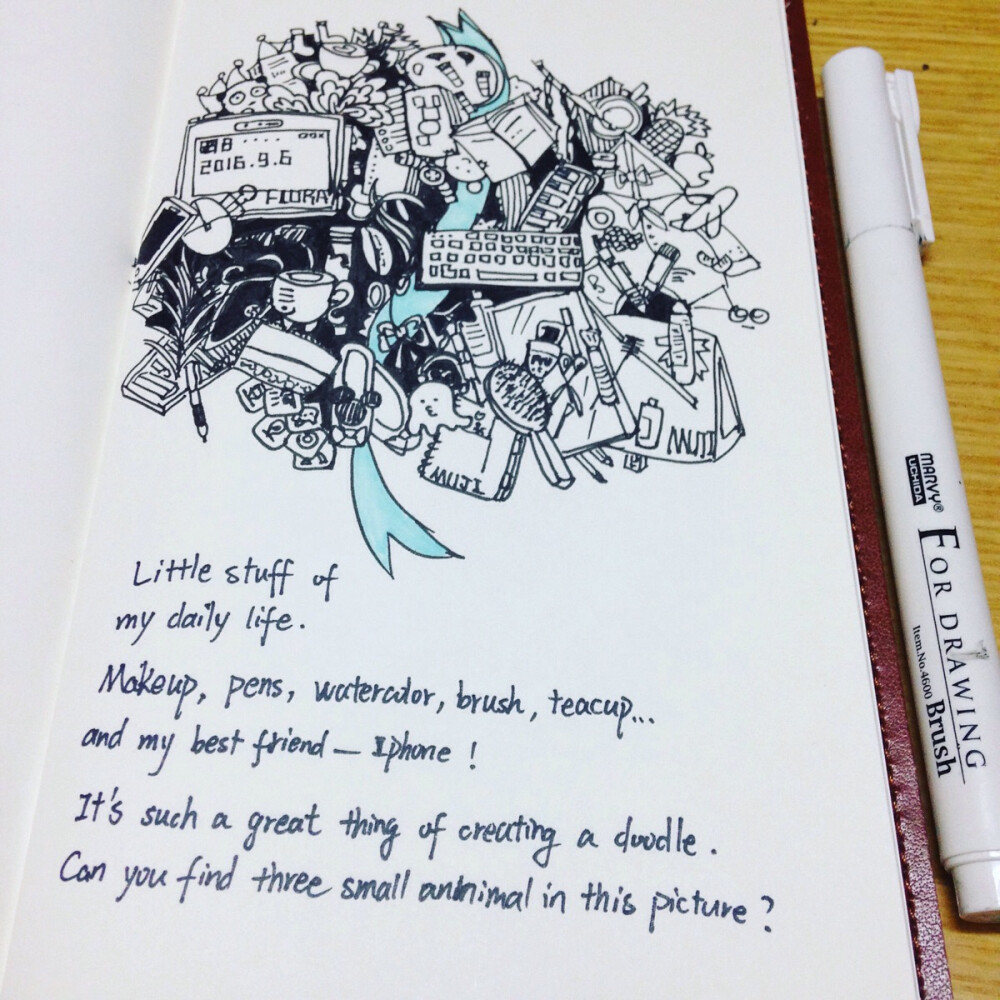 2016.9.6
FLORA
MUJI
MUJI
Little stuff of
my daily life.
Makeup, pens, watercolor, brush, teacup...
and my best friend — Iphone !
It's such a great thing of creating a doodle .
Can you find three small aninimal in this picture ?
MARVY®
UCHIDA
FOR DRAWING
Item.No.4600 Brush